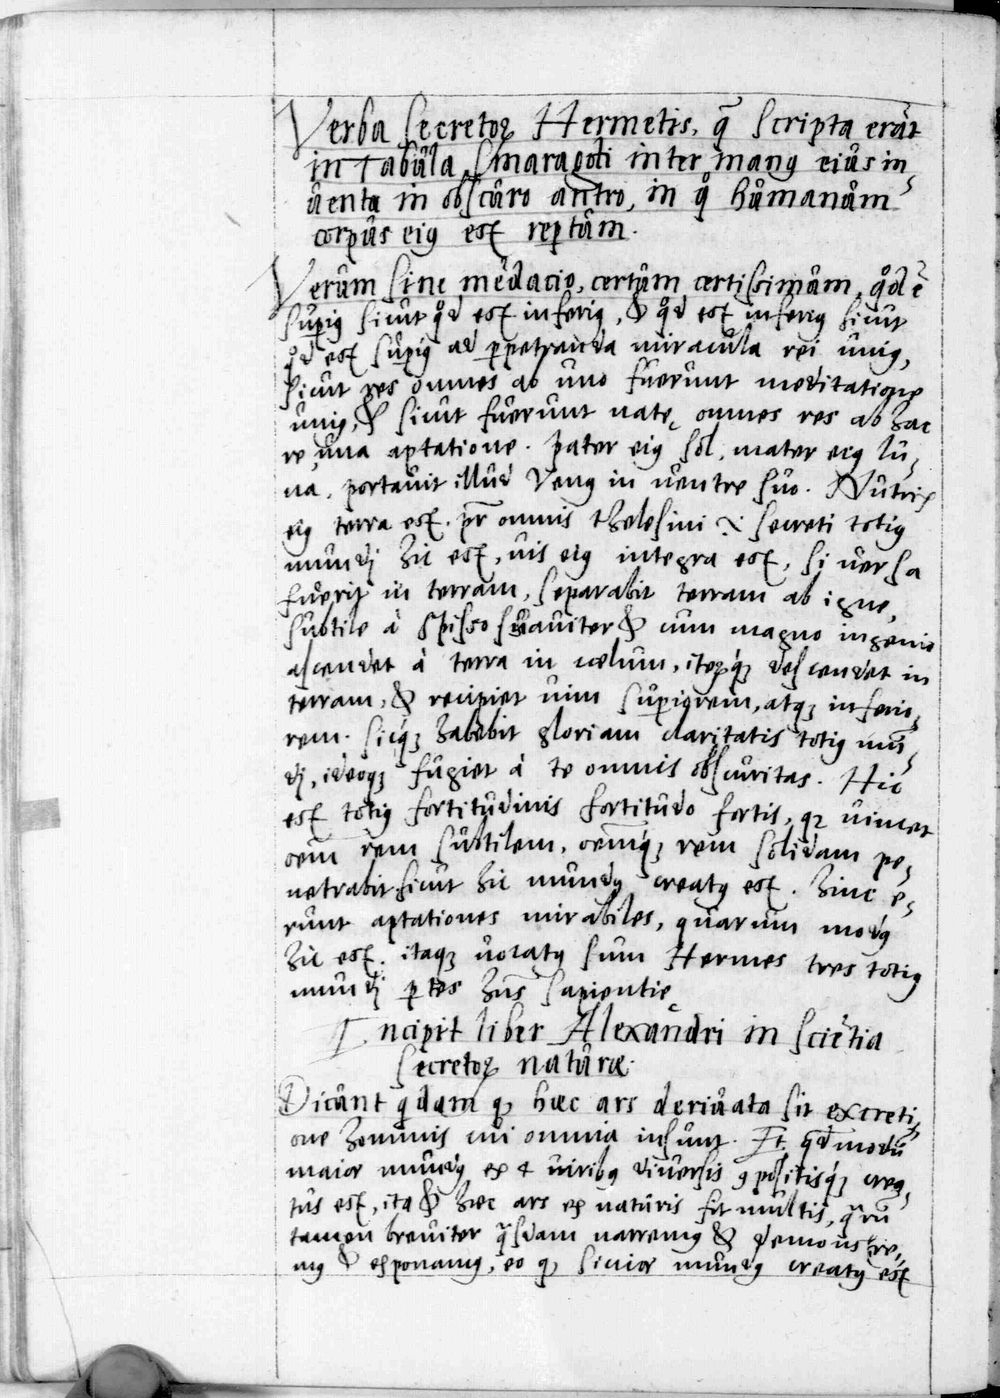 Verba Secretoꝝ Hermetis, q̃ Scripta erãt
in Tabula Smaragdi inter manꝰ eius in=
uenta in obscuro antro, in q̊ humanum
corpus eiꝰ est reptum.
Verum sine mẽdacio, certum certissimum, q̊d ẽ
suꝑiꝰ sicut q̊d est inferiꝰ, & q̊d est inferiꝰ sicut
q̊d est suꝑiꝰ ad ꝑpetranda miracula rei uniꝰ,
Sicut res omnes ab uno fuerunt meditatione
uniꝰ, & sicut fuerunt natę omnes res ab hac
re una aptatione. pater eiꝰ sol, mater eiꝰ lu=
na, portauit illud Venꝰ in uentre suo. Nutrix
eiꝰ terra est. pr̃ omnis thelesini i secreti totiꝰ
mundi hic est, uis eiꝰ integra est, si uersa
fuerit in terram, separabit terram ab igne,
subtile à spisso suauiter & cum magno ingenio
ascendet à terra in cœlum, iteꝝq́ꝫ descendet in
terram, & recipiet uim suꝑiorem, atqꝫ inferio=
rem. sicq́ꝫ habebit gloriam claritatis totiꝰ mũ=
di, ideoqꝫ fugiet à te omnis obscuritas. Hic
est totiꝰ fortitudinis fortitudo fortis, qꝫ uincet
oem̃ rem subtilem, oem̃q́ꝫ rem solidam pe=
netrabit sicut hic mundꝰ creatꝰ est. hinc e=
runt aptationes mirabiles, quarum modꝰ
hic est. itaqꝫ uocatꝰ sum Hermes tres totiꝰ
mundi ꝑtes hñs sapientię
Incipit liber Alexandri in sciẽtia
secretoꝝ naturæ.
Dicunt q̊dam qꝫ hæc ars deriuata sit ex creti=
one hominis cui omnia insunt. Et qd̃modũ
maior mundꝰ ex 4 uiribꝰ diuersis ꝯpositisq́ꝫ crea=
tus est, ita & hæc ars ex naturis fit multis, q̃rũ
tamen breuiter q̃sdam narremꝰ & demonstre=
mꝰ & exponamꝰ, eo qꝫ sicior mundꝰ creatꝰ est